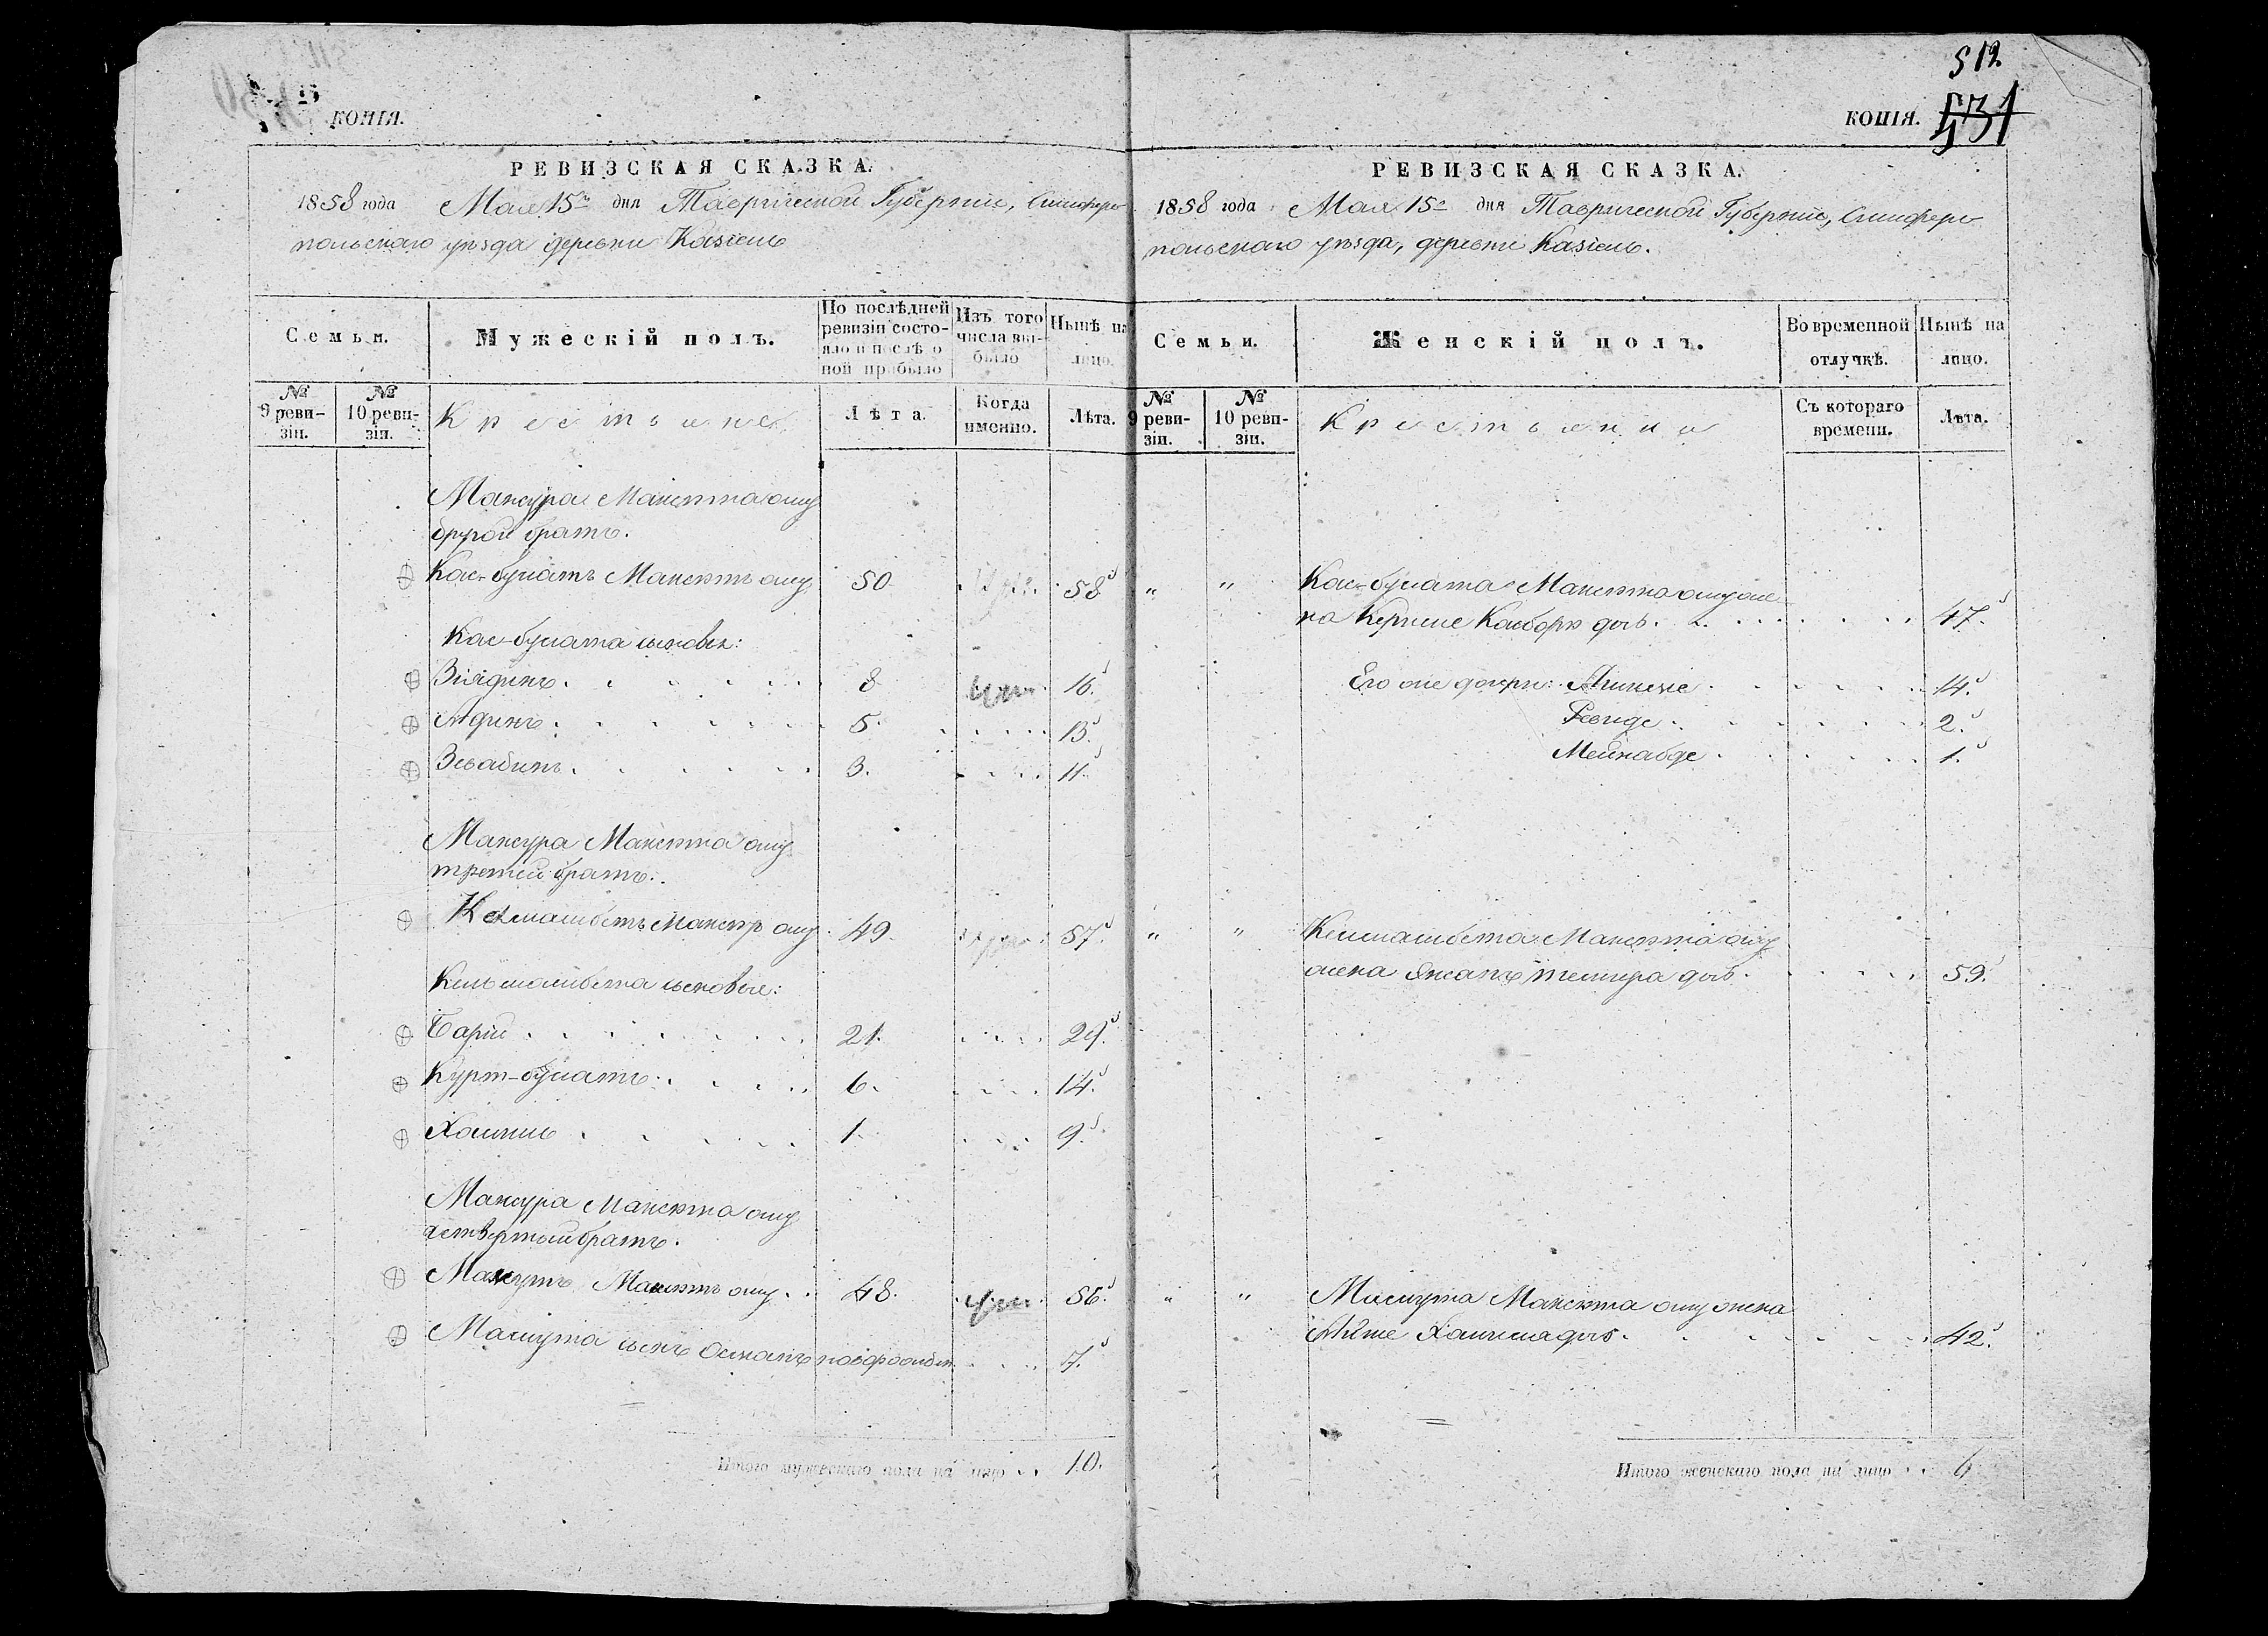 КОПІЯ.
РЕВИЗСКАЯ СКАЗКА.
1858 года Мая 15го дня Таврической Губерніи, Симферо
польскаго уѣзда деревни Казіель
Семьи.
Мужескій полъ.
По послѣдней ревизіи состояло и послѣ оной прибыло
Изъ того числа выбыло
Нынѣ на лицо.
№ 9 ревизіи.
№ 10 ревизіи.
Крестьяне
Лѣта.
Когда именно.
Лѣта.
Мансура Мансюта оглу
другой братъ.
Кас-булатъ Мансютъ оглу 50 58
Кас-булата сыновья:
Зіядинъ 8 16.
Аединъ 5. 13.
3. 11.
Мансура Мансюта оглу
третій братъ.
Келмамбетъ оглу 49. 57.
Кельмамбета сыновья:
Барій 21. 29.
Курт-булатъ 6. 14.
Халиль 1. 9.
Мансура Мансюта оглу
четвертый братъ.
Мамутъ Мансютъ оглу 48. 56.
Мамута сынъ Османъ 7.
Итого мужескаго пола на лицо 10.
519.
КОПІЯ. 531
РЕВИЗСКАЯ СКАЗКА.
1858 года Мая 15го дня Таврической Губерніи, Симферо
польскаго уѣзда, деревни Казіель.
Семьи.
Женскій полъ.
Во временной отлучкѣ.
Нынѣ на лицо.
№ 9 ревизіи.
№ 10 ревизіи.
Крестьянки
Съ котораго времени.
Лѣта.
" " Кас-булата Мансюта оглу же
на 47.
Его же дочери: 14.
2.
1.
" " Келмамбета Мансюта оглу
жена Темира 59.
" " Мамута Мансюта оглу жена
42.
Итого женскаго пола на лицо 6